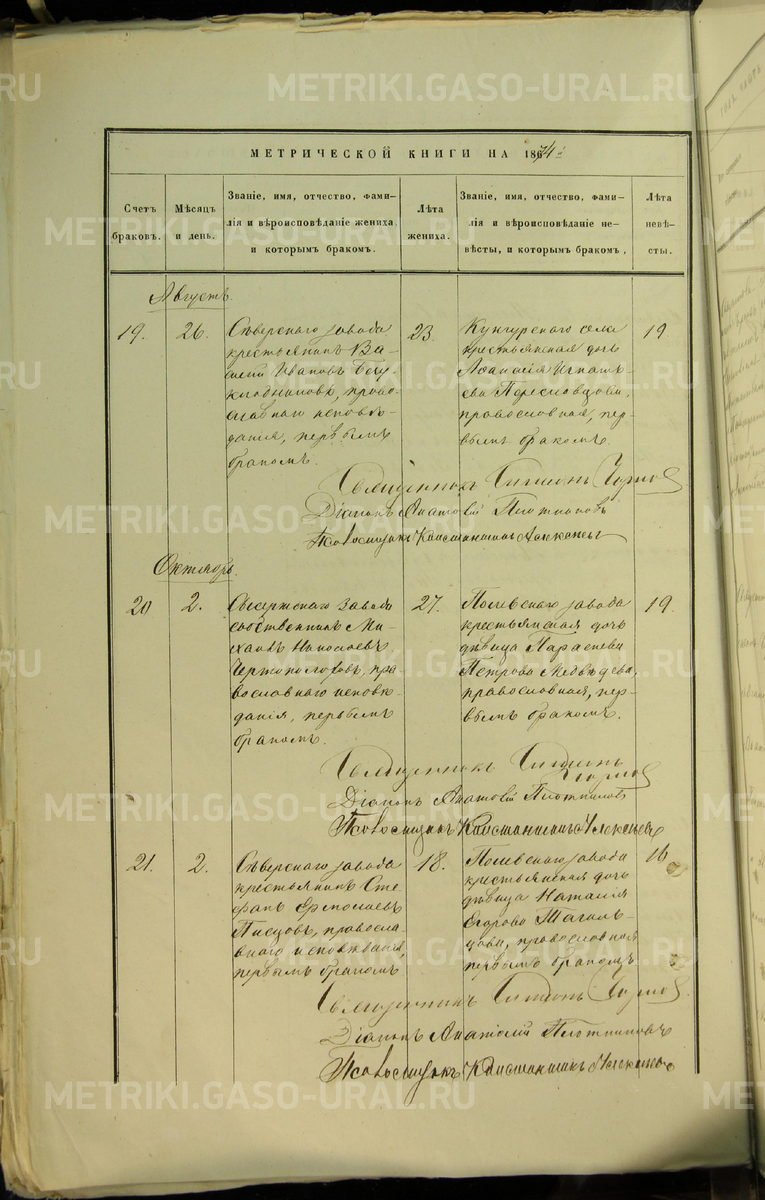 METRIKI.GASO-URAL.RU
МЕТРИЧЕСКОЙ КНИГИ НА 1874.
Счетъ браковъ.
Мѣсяцъ и день.
Званіе, имя, отчество, фами-
лія и вѣроисповѣданіе жениха
и которымъ бракомъ.
Лѣта жениха.
Званіе, имя, отчество, фами-
лія и вѣроисповѣданіе не-
вѣсты, и которымъ бракомъ,
Лѣта невѣ-
сты.
Августъ.
19. 26.
Сѣверскаго завода
крестьянинъ Ва-
силій Ивановъ
православнаго исповѣ-
данія, первымъ
бракомъ.
23.
Кунгурскаго села
крестьянская дочь
Игнать-
ева
православная, пер-
вымъ бракомъ.
19
Священникъ Симеонъ
Діаконъ Анатолій Плотниковъ
Псаломщикъ Константинъ
Октябрь.
20 2.
Сысертскаго завода
собственникъ Ми-
хаилъ
пра-
вославнаго исповѣ-
данія, первымъ
бракомъ.
27.
Полевскаго завода
крестьянская дочь
дѣвица Параскева
Петрова Медвѣдева,
православная, пер-
вымъ бракомъ.
19.
Священникъ Симеонъ
Діаконъ Анатолій Плотниковъ
Псаломщикъ Константинъ
21. 2.
Сѣверскаго завода
крестьянинъ Сте-
фанъ Ермолаевъ
Писцовъ, правосла-
внаго исповѣданія,
первымъ бракомъ
18.
Полевскаго завода
крестьянская дочь
дѣвица Наталія
Егорова Тагиль-
цова, православная
первымъ бракомъ
16
Священникъ Симеонъ
Діаконъ Анатолій Плотниковъ
Псаломщикъ Константинъ